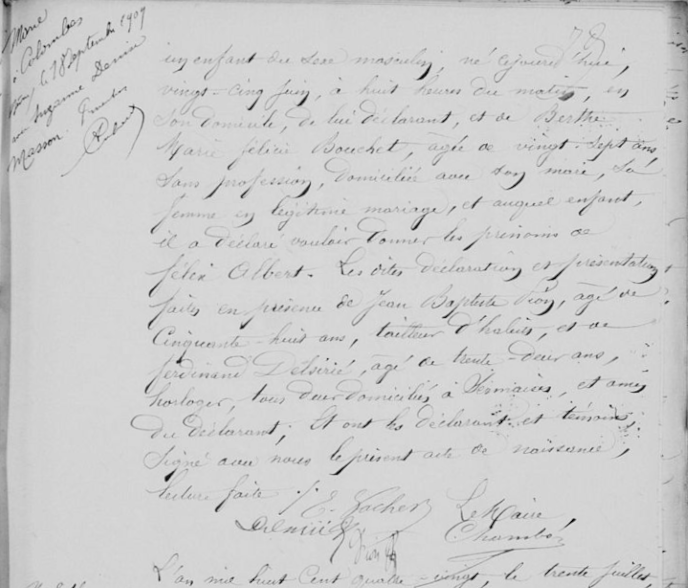 Marié
à Colombes
le 18 Septembre 1909
avec Suzanne Denise
Masson.
un enfant du sexe masculin, né aujourd'hui,
vingt-cinq Juin, à huit heures du matin, en
son domicile, de lui déclarant, et de Berthe
Marie Félicie Bouchet, agée de vingt-sept ans
sans profession, domiciliée avec son mari, sa
femme en légitime mariage, et auquel enfant,
il a déclaré vouloir donner les prénoms de
Félix Albert. Les dites déclaration et présentation
faites en présence de Jean Baptiste Pion, agé de
Cinquante-huit ans, tailleur d'habits, et de
Ferdinand Delsirié, agé de trente-deux ans,
horloger, tous deux domiciliés à Sermaises, et amis
du déclarant; Et ont les déclarant et témoins,
signé avec nous le présent acte de naissance,
lecture faite ./. E. Vacher Le Maire
Pion Chambo
L'an mil huit Cent quatre-vingt, le trente Juillet,